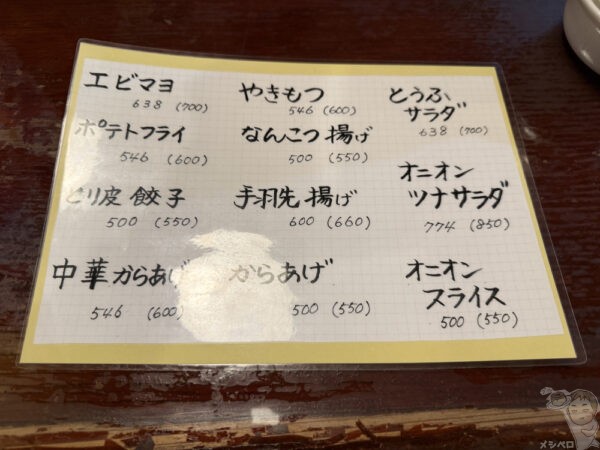 エビマヨ
638 (700)
ポテトフライ
546 (600)
とり皮餃子
500 (550)
中華からあげ
546 (600)
やきもつ
546 (600)
なんこつ揚げ
500 (550)
手羽先揚げ
600 (660)
からあげ
500 (550)
とうふ
サラダ
638 (700)
オニオン
ツナサラダ
774 (850)
オニオン
スライス
500 (550)
メシペロ